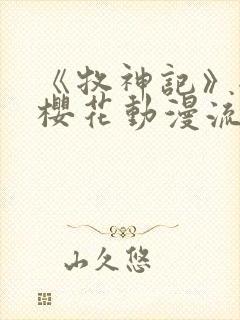 《牧神記》
櫻花動漫流
山久悠